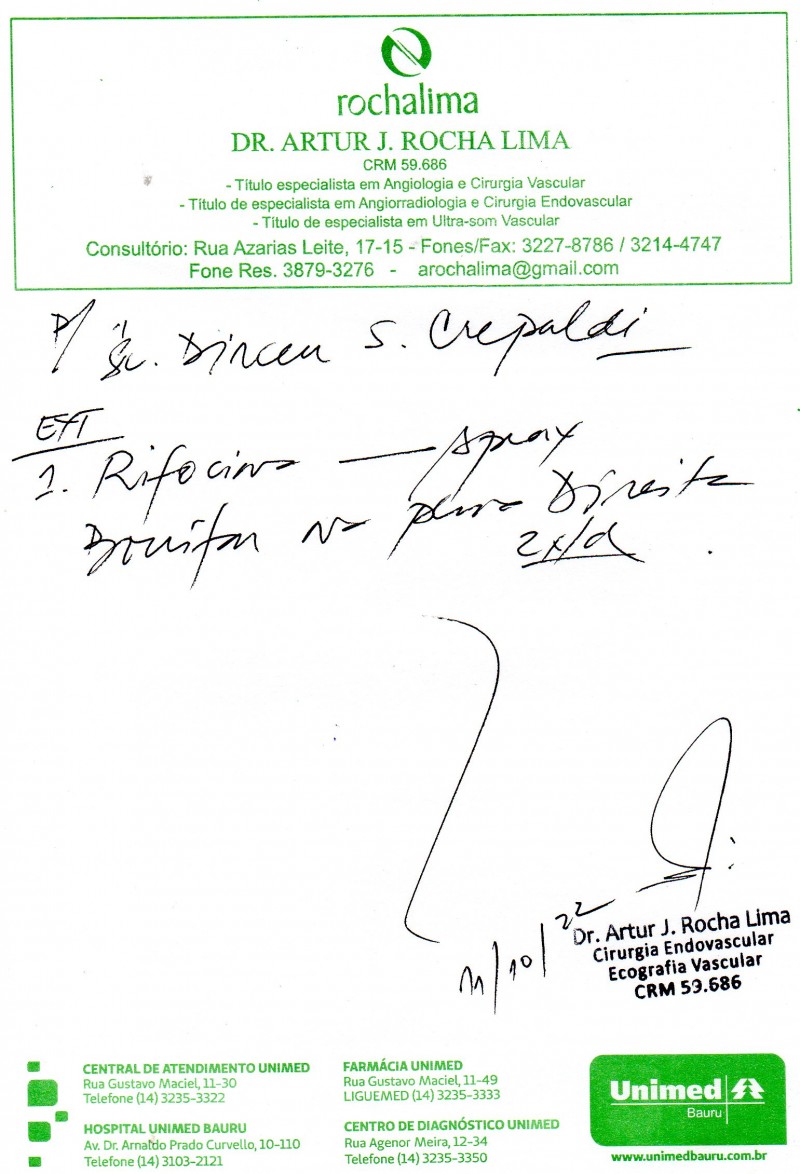 rochalima
DR. ARTUR J. ROCHA LIMA
CRM 59.686
- Título especialista em Angiologia e Cirurgia Vascular
- Título de especialista em Angiorradiologia e Cirurgia Endovascular
- Título de especialista em Ultra-som Vascular
Consultório: Rua Azarias Leite, 17-15 - Fones/Fax: 3227-8786 / 3214-4747
Fone Res. 3879-3276 - arochalima@gmail.com
P/ Sr. Dirceu S. Crepaldi
EXT
1. Rifocina — spray
Borrifar na perna Direita
2x/d.
11/10/22
Dr. Artur J. Rocha Lima
Cirurgia Endovascular
Ecografia Vascular
CRM 59.686
CENTRAL DE ATENDIMENTO UNIMED
Rua Gustavo Maciel, 11-30
Telefone (14) 3235-3322
HOSPITAL UNIMED BAURU
Av. Dr. Arnaldo Prado Curvello, 10-110
Telefone (14) 3103-2121
FARMÁCIA UNIMED
Rua Gustavo Maciel, 11-49
LIGUEMED (14) 3235-3333
CENTRO DE DIAGNÓSTICO UNIMED
Rua Agenor Meira, 12-34
Telefone (14) 3235-3350
Unimed
Bauru
www.unimedbauru.com.br